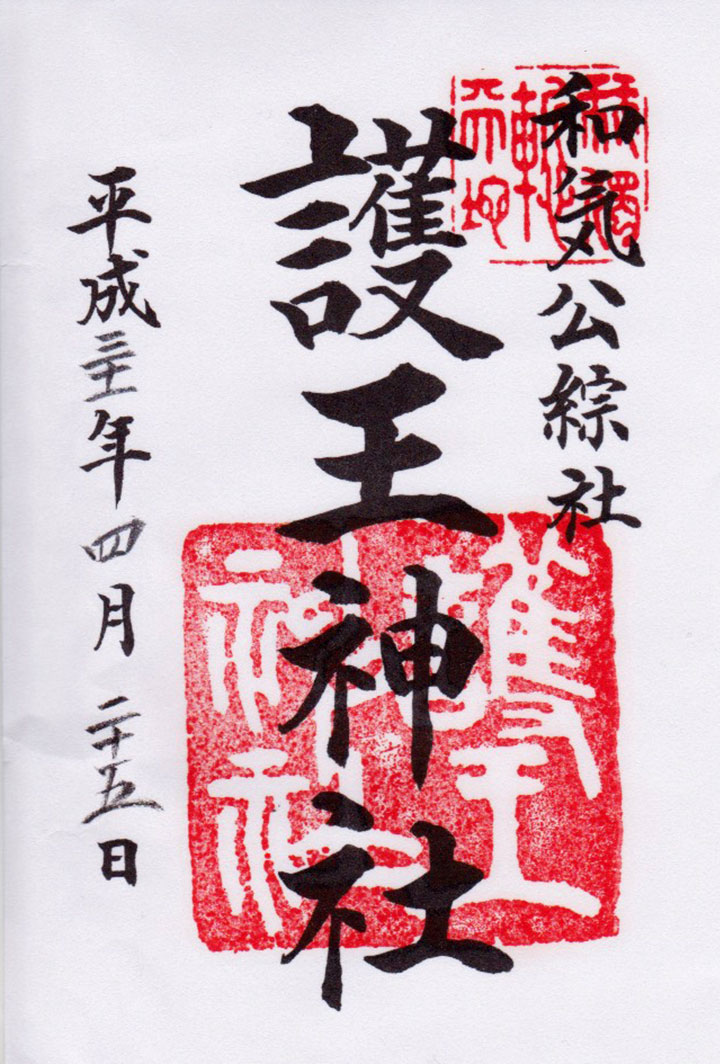 和気公綜社
護王神社
平成三十一年四月二十五日
護王
神社